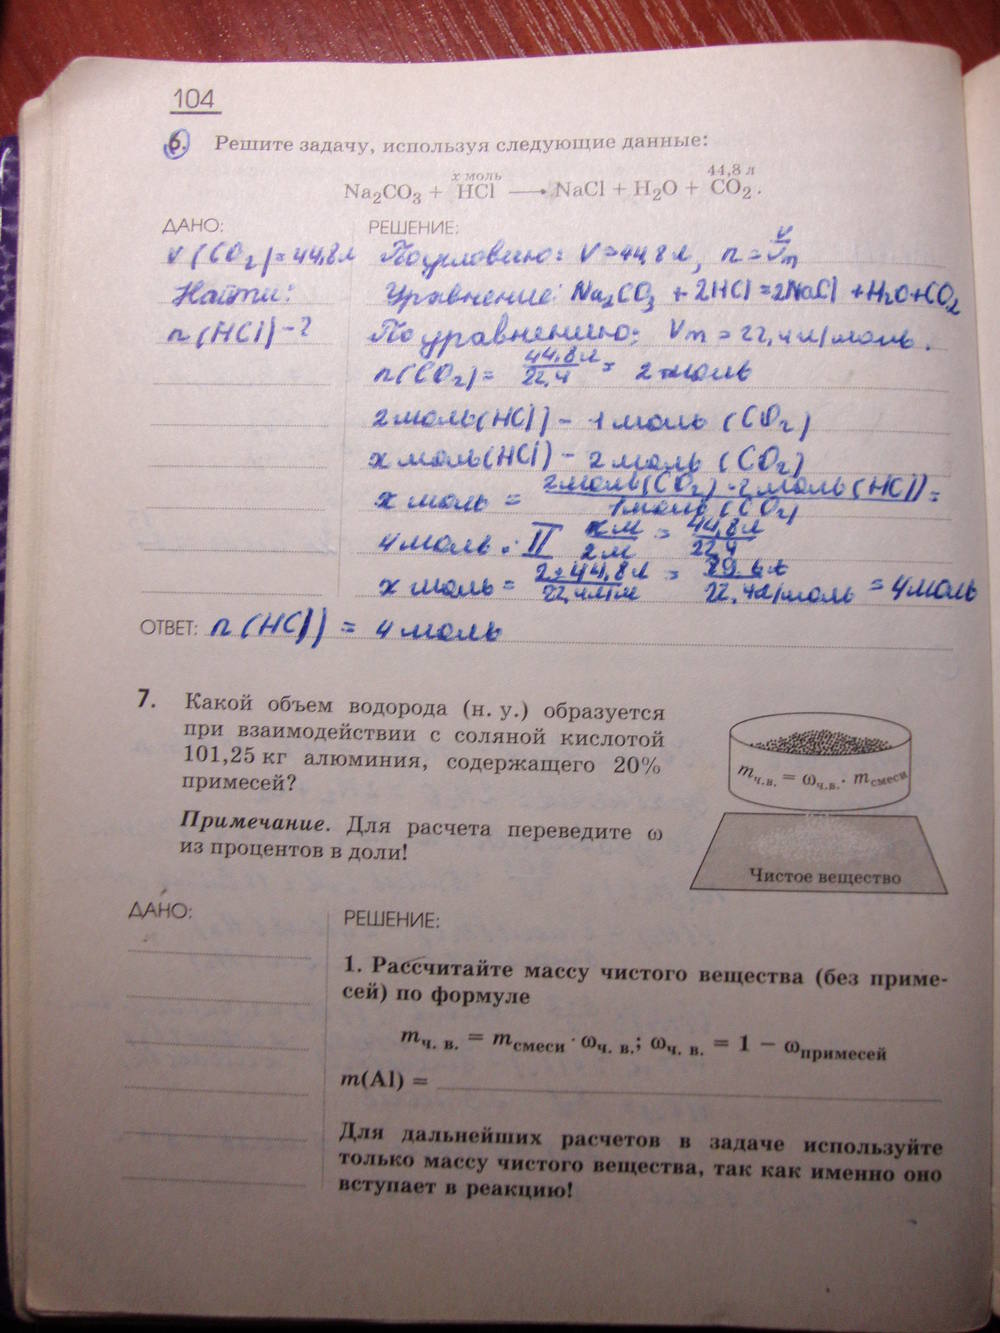 104
6. Решите задачу, используя следующие данные:
х моль 44,8 л
Na₂CO₃ + HCl ⟶ NaCl + H₂O + CO₂.
ДАНО: РЕШЕНИЕ:
V(CO₂)=44,8л По условию: V=44,8л, n = V/Vm
Найти: Уравнение: Na₂CO₃ + 2HCl = 2NaCl + H₂O + CO₂
n(HCl) - ? По уравнению: Vm = 22,4 л/моль.
n(CO₂) = 44,8л/22,4 = 2 моль
2 моль(HCl) - 1 моль (CO₂)
х моль(HCl) - 2 моль (CO₂)
х моль = 2моль(CO₂) · 2моль(HCl)/1моль(CO₂) =
4 моль. II хм/2м = 44,8л/22,4
х моль = 2·44,8л/22,4л/м = 89,6л/22,4л/моль = 4моль
ОТВЕТ: n(HCl) = 4 моль
7. Какой объем водорода (н. у.) образуется
при взаимодействии с соляной кислотой
101,25 кг алюминия, содержащего 20%
примесей?
Примечание. Для расчета переведите ω
из процентов в доли!
mч.в. = ωч.в. · mсмеси
Чистое вещество
ДАНО: РЕШЕНИЕ:
1. Рассчитайте массу чистого вещества (без приме-
сей) по формуле
mч. в. = mсмеси · ωч. в.; ωч. в. = 1 − ωпримесей
m(Al) =
Для дальнейших расчетов в задаче используйте
только массу чистого вещества, так как именно оно
вступает в реакцию!